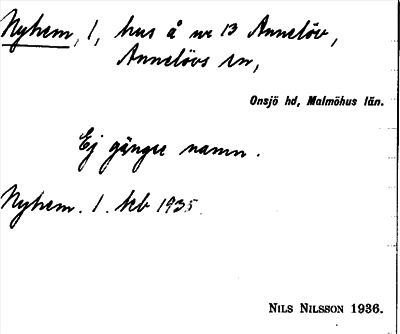 Nyhem, 1, hus å nr 13 Annelöv,
Annelövs sn,
Onsjö hd, Malmöhus län.
Ej gängse namn.
Nyhem. 1. kb 1935.
NILS NILSSON 1936.